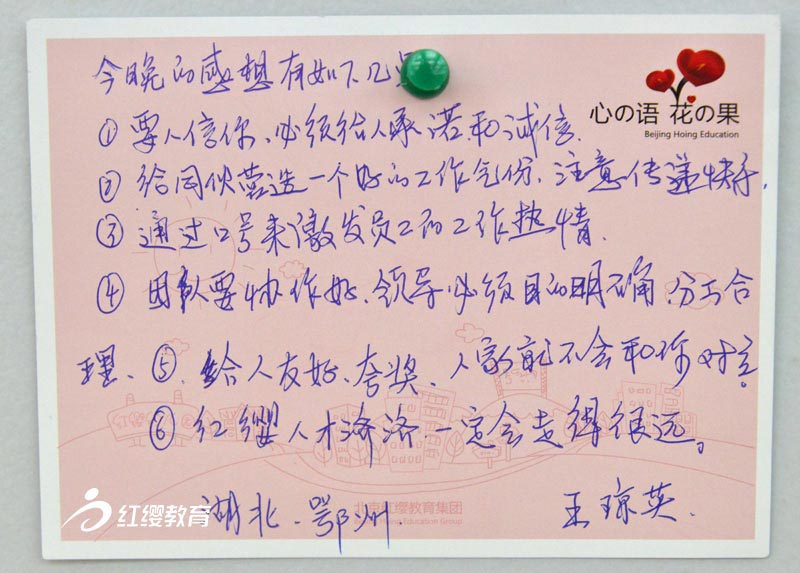 今晚的感想有如下几
心の语 花の果
Beijing Hoing Education
①要人信你、必须给人承诺和诚信.
②给同伙营造一个好的工作气份、注意传递快乐.
③通过口号来激发员工的工作热情.
④团队要协作好、领导必须目的明确,分工合
理、⑤、给人友好、夸奖、人家就不会和你对立。
⑥红缨人才济济一定会走得很远。
红缨教育
湖北.鄂州.
王琼英.
北京红缨教育集团
Beijing Hoing Education Group